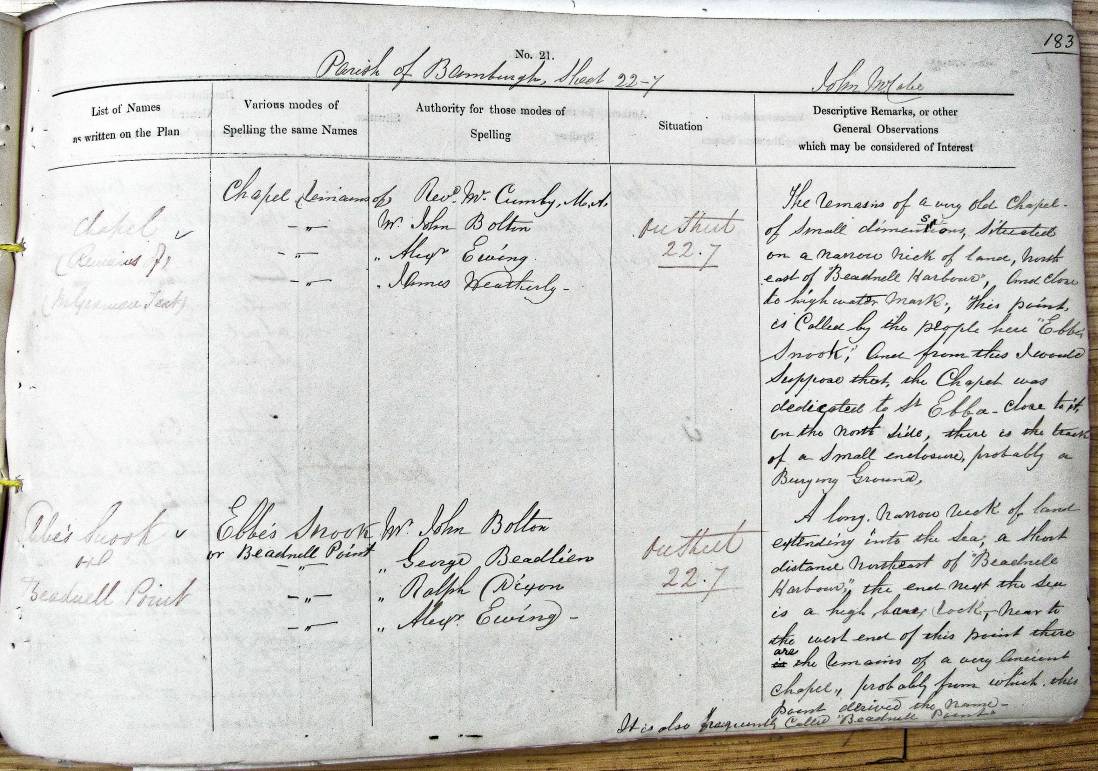 183
No. 21.
Parish of Bamburgh, Sheet 22-7
John McCabe
List of Names
as written on the Plan
Various modes of
Spelling the same Names
Authority for those modes of
Spelling
Situation
Descriptive Remarks, or other
General Observations
which may be considered of Interest
Chapel
(Remains of)
Chapel (remains of)
Revd. Mr. Cumby, M.A.
Mr. John Bolton
„ Alexr. Ewing
„ James Weatherly -
on Sheet
22.7
The remains of a very old Chapel -
of small dimensions, situated
on a narrow nick of land, North
east of "Beadnell Harbour", and close
to high water mark, This point
is called by the people here "Ebb's
Snook", And from this I would
suppose that, the Chapel was
dedicated to St Ebba - close to it,
on the north side, there is the track
of a small enclosure, probably a
Burying Ground,
Ebbe's Snook
or
Beadnell Point
Ebbe's Snook
or Beadnell Point
Mr. John Bolton
„ George
„ Ralph Dixon
„ Alexr. Ewing -
on Sheet
22.7
A long, narrow neck of land
extending into the sea, a short
distance Northeast of "Beadnell
Harbour", the end next the sea
is a high bare, rock, near to
the west end of this point there
are
is the remains of a very Ancient
Chapel, probably from which this
point derived the name -
It is also frequently called "Beadnell Point"